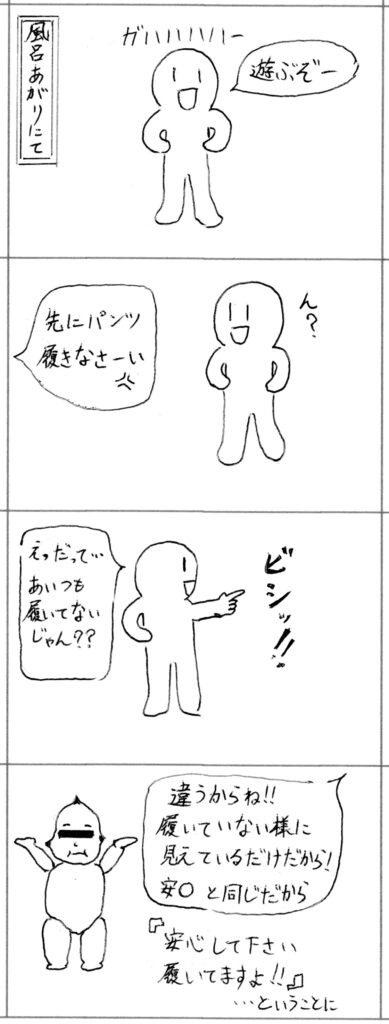 風呂あがりにて
ガハハハハハー
遊ぶぞー
ん?
先にパンツ
履きなさーい
えっだって…
あいつも
履いてない
じゃん??
ビシッ!!
違うからね!!
履いていない様に
見えているだけだから!
安○と同じだから
『安心して下さい
履いてますよ!!』
…ということに